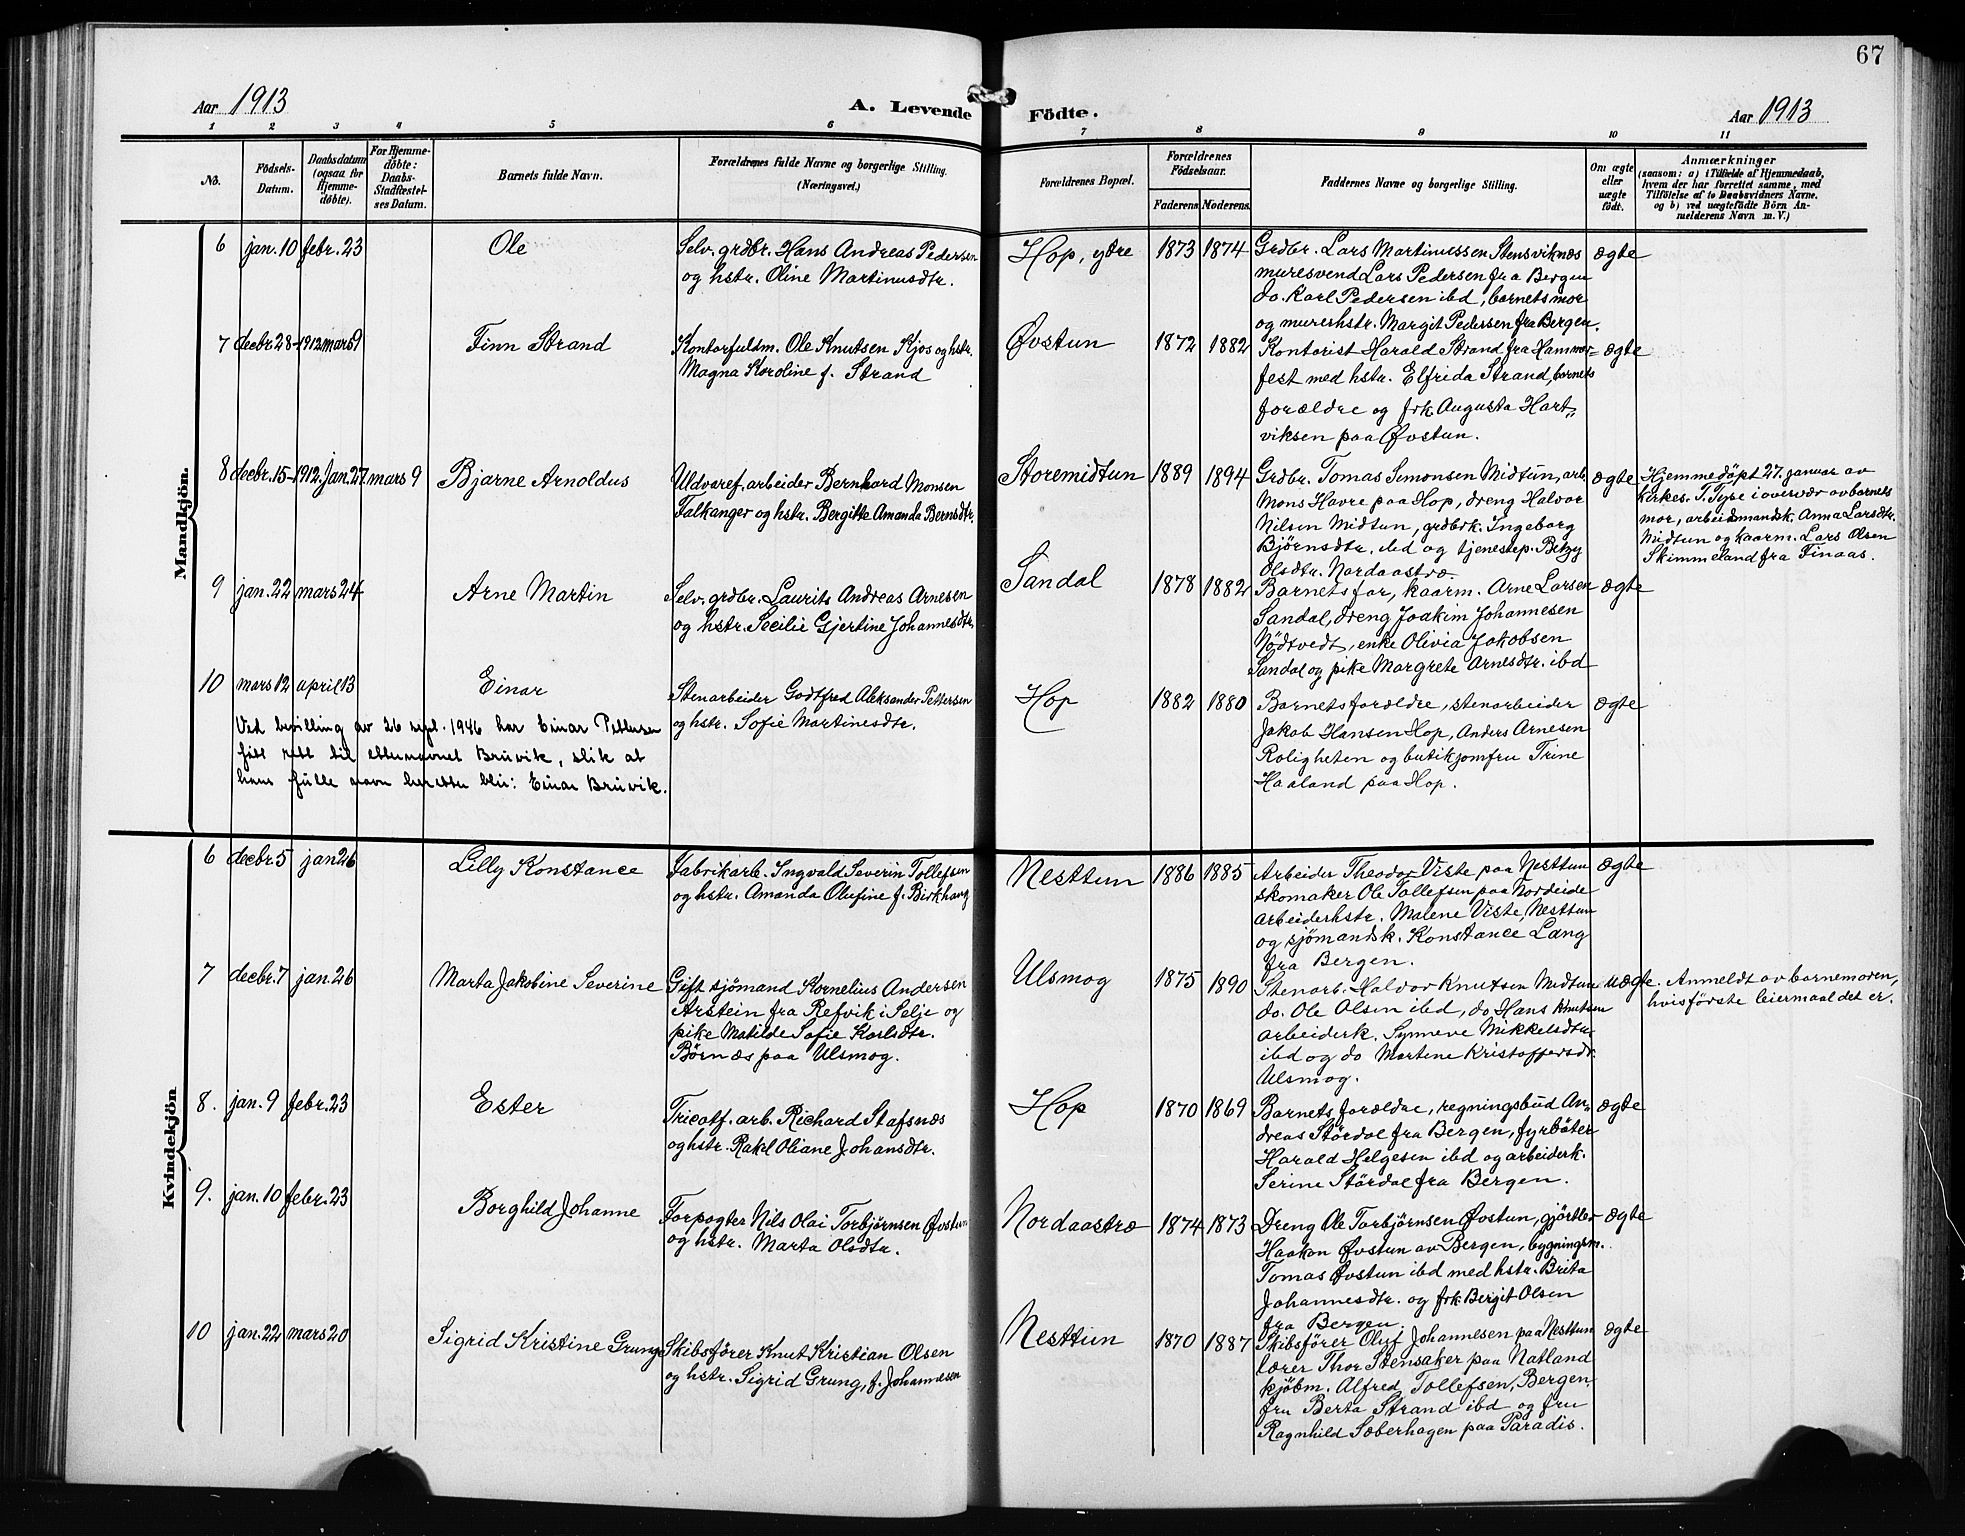 67
Aar 1913
A. Levende Födte.
Aar 1913
1 2 3 4 5 6 7 8 9 10 11
No.
Födsels-
Datum.
Daabsdatum
(ogsaa for
Hjemme-
döbte).
For Hjemme-
döbte:
Daabs-
Stadfæstel-
ses Datum.
Barnets fulde Navn.
Forældrenes fulde Navne og borgerlige Stilling.
(Næringsvei.)
Forældrenes Bopæl.
Forældrenes
Födselsaar.
Faderens
Moderens
Faddernes Navne og borgerlige Stilling.
Om ægte
eller
uægte
födt.
Anmærkninger
(saasom: a) i Tilfælde af Hjemmedaab,
hvem der har forrettet samme, med
Tilföielse af to Daabsvidners Navne.
og b) ved uægtefödte Börn An-
melderens Navn m. V.)
Mandkjön.
6 jan. 10 febr. 23
Ole
Selv. grdbr. Hans Andreas Pedersen
og hstr. Oline Martinusdtr.
Hop, ytre
1873 1874
Grdbr. Lars Martinussen Stensviknæs
muresvend Lars Pedersen fra Bergen
do. Karl Pedersen ibd, barnets mor
og murerhstr. Margit Pedersen fra Bergen.
ægte
7 decbr 28-1912 mars 9
Finn Strand
Kontorfuldm. Ole Knutsen Kjos og hstr.
Magna Karoline f. Strand
Øvstun
1872 1882
Kontorist Harald Strand fra Hammer-
fest med hstr. Elfrida Strand, barnets
forældre og frk. Augusta Hart-
viksen paa Øvstun.
ægte
8 decbr. 15-1912. Jan. 27. mars 9
Bjarne Arnoldus
Uldvaref. arbeider Bernhard Monsen
Falkanger og hstr. Bergitte Amanda Berns­dtr.
Storemidtun
1889 1894
Grdbr. Tomas Simonsen Midtun, arb.
Mons Havre paa Hop, dreng Halvor
Nilsen Midtun, grdbrk. Ingeborg
Bjørnsdtr. ibd og tjenestep. Betzy
Olsdtr. Nordaastræ.
ægte
Hjemmedöpt 27. januar av
kirkes. T. Tyse i overvær av barnets
mor, arbeidsmandsk. Anna Larsdtr.
Midtun og kaarm. Lars Olsen
Skimmeland fra Finaas.
9 jan. 22 mars 24
Arne Martin
Selv. grdbr. Laurits Andreas Arnesen
og hstr. Secilie Gjertine Johannesdtr.
Sandal
1878 1882
Barnets far, kaarm. Arne Larsen
Sandal, dreng Joakim Johannesen
Nödtvedt, enke Olivia Jakobsen
Sandal og pike Margrete Arnesdtr. ibd
ægte
10 mars 12 april 13
Einar
Stenarbeider Godtfred Aleksander Pettersen
og hstr. Sofie Martinesdtr.
Hop
1882 1880
Barnets forældre, stenarbeider
Jakob Hansen Hop, Anders Arnesen
Roligheten og butikjomfru Trine
Haaland paa Hop.
ægte
Ved bevilling av 26 sept. 1946 har Einar Pettersen
fått rett til etternavnet Bruvik, slik at
hans fulle navn heretter blir: Einar Bruvik.
Kvindekjön
6 decbr. 5 jan 26
Lilly Konstance
Fabrikarb. Ingvald Severin Tollefsen
og hstr. Amanda Olufine f. Birkhaug
Nesttun
1886 1885
Arbeider Theodor Viste paa Nesttun
skomaker Ole Tollefsen paa Nordeide
arbeiderhstr. Malene Viste, Nesttun
og sjömandsk. Konstance Lang
fra Bergen.
ægte
7 decbr. 7 jan. 26
Marta Jakobine Severine
Gift sjömand Kornelius Andersen
Arstein fra Refvik i Selje og
pike Matilde Sofie Karlsdtr.
Børnæs paa Ulsmog.
Ulsmog
1875 1890
Stenarb. Halvor Knutsen Midtun
do. Ole Olsen ibd, do Hans Knutsen
arbeiderk. Synneve Mikkelsdtr.
ibd og do Martine Kristoffersdtr.
Ulsmog.
uægte.
Anmeldt av barnemoren,
hvis förste leiermaal det er.
8. jan. 9 febr. 23
Ester
Tricotf. arb. Richard Stafsnæs
og hstr. Rakel Oliane Johansdtr.
Hop
1870 1869
Barnets forældre, regningsbud An-
dreas Stördal fra Bergen, fyrböter
Harald Helgesen ibd og arbeiderk.
Serine Stördal fra Bergen.
ægte
9. jan. 10 febr. 23
Borghild Johanne
Forpagter Nils Olai Torbjørnsen Øvstun
og hstr. Marta Olsdtr.
Nordaastræ
1874 1873
Dreng Ole Torbjørnsen Øvstun, gjörtler
Haakon Øvstun av Bergen, bygningsm.
Tomas Øvstun ibd med hstr. Brita
Johannesdtr. og frk. Bergit Olsen
fra Bergen.
ægte
10 jan. 22 mars 20
Sigrid Kristine Grung
Skibsfører Knut Kristian Olsen
og hstr. Sigrid Grung, f. Johannesen
Nesttun
1870 1887
Skibsfører Oluf Johannesen paa Nesttun
lærer Thor Stensaker paa Natland
kjöbm. Alfred Tollefsen, Bergen,
fru Berta Strand ibd og fru
Ragnhild Søberhagen paa Paradis.
ægte